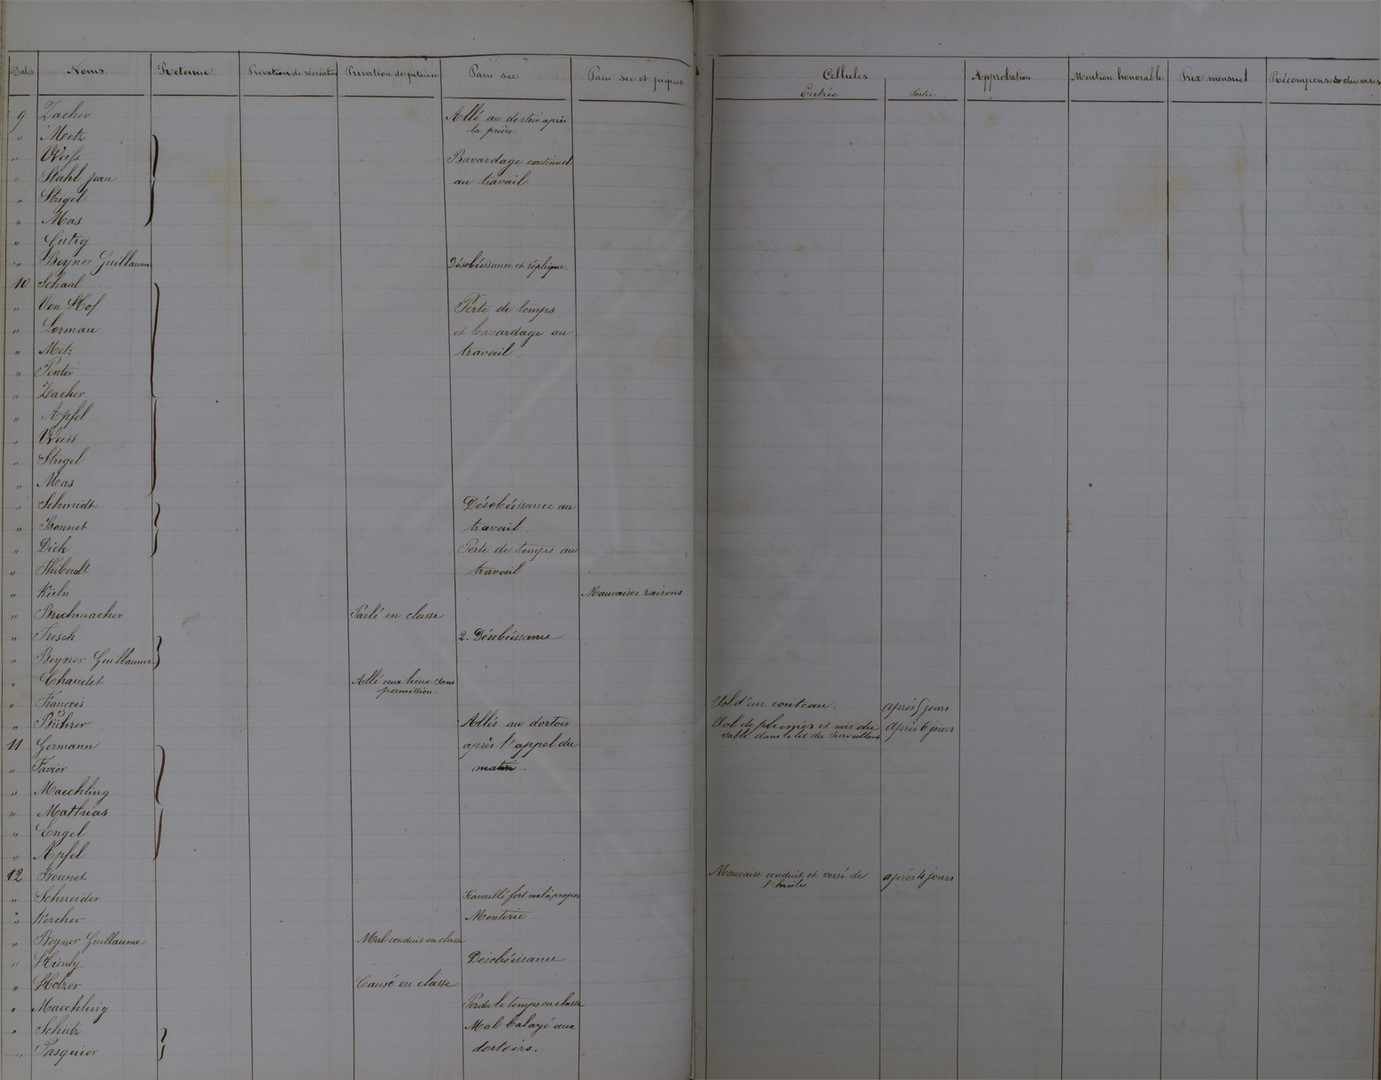 Dates Noms Retenue Privation de récréation Privation de pitance Pain sec Pain sec et piquet Cellules Approbation Mention honorable Prix mensuel Récompenses diverses
Entrée Sortie
9 Zacher Allé au dortoir après
la prière.
" Metz
" Weiss Bavardage continuel
" Stahl Jean au travail
" Strigel
" Mas
" Gutig
" Beyner Guillaume Désobéissance et réplique.
10 Schaal
" Von Hof Perte de temps
" Lorman et bavardage au
" Metz travail
" Penter
" Zacher
" Apfel
" Weiss
" Strigel
" Mas
" Schmidt Désobéissance au
" Bonnet travail
" Dick Perte de temps au
" Thibault travail
" Kieln Mauvaises raisons
" Bruchmacher Parlé en classe
" Fresch 2. Désobéissance
" Beyner Guillaume
" Chaudet Allé aux lieux sans
permission.
" François Vol d'un couteau. après 5 jours
" Bührer Allés au dortoir Vol de plumes et mis du après 6 jours
sable dans le lit du surveillant
11 Germann après l'appel du
" Favier matin.
" Maechling
" Matthias
" Engel
" Apfel
12 Bonnet Mauvaise conduite et versé de après 4 jours
l'huile
" Schneider Travaillé fort mal à propos
" Kercher Menterie
" Beyner Guillaume Mal conduit en classe
" Hienly Désobéissance
" Holzer Causé en classe
" Maechling Perdu le temps en classe
" Schütz Mal balayé aux
" Pasquier dortoirs.